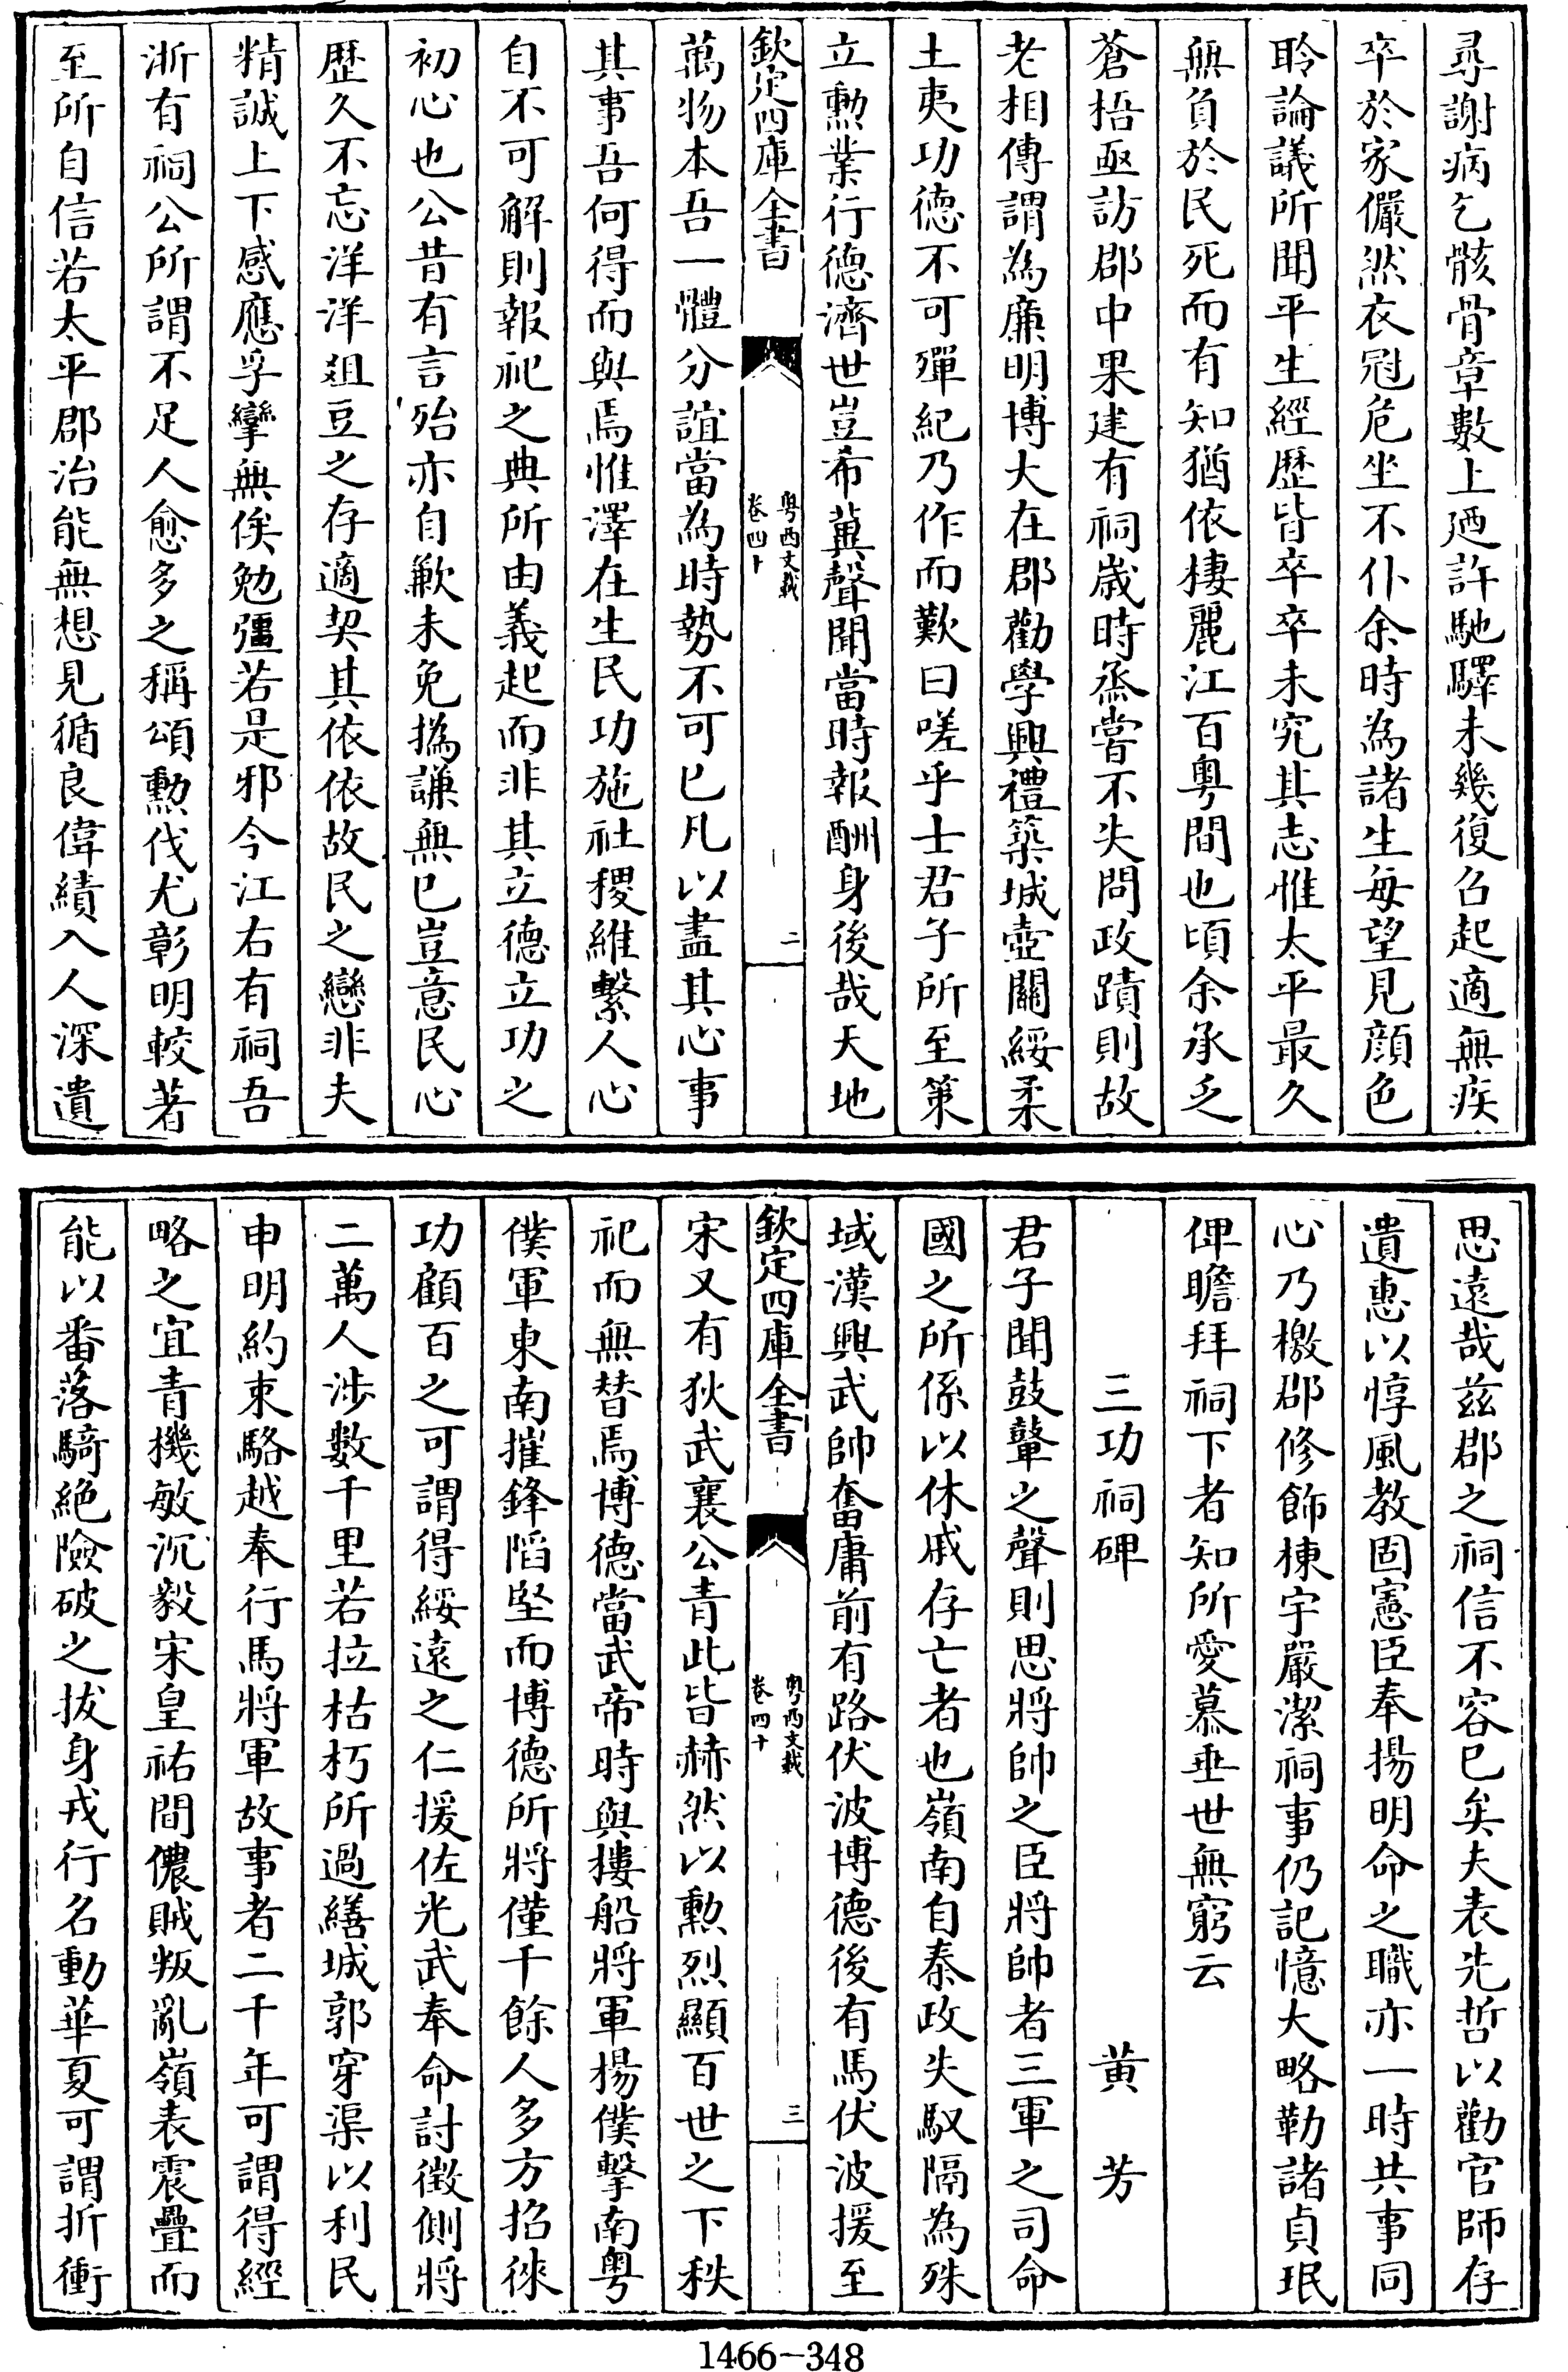 尋謝病乞骸骨章數上廼許馳驛未幾復召起適無疾
卒於家儼然衣冠危坐不仆余時為諸生每望見顔色
聆論議所聞平生經歴皆卒卒未究其志惟太平最久
無負於民死而有知猶依棲麗江百粤間也頃余承乏
蒼梧亟訪郡中果建有祠嵗時烝嘗不失問政蹟則故
老相傳謂為廉明博大在郡勸學興禮築城壺關綏柔
土夷功德不可殫紀乃作而歎曰嗟乎士君子所至策
立勲業行德濟世豈希冀聲聞當時報酬身後哉天地
欽定四庫全書
粤西文載
卷四十
二
萬物本吾一體分誼當為時勢不可已凡以盡其心事
其事吾何得而與焉惟澤在生民功施社稷維繫人心
自不可解則報祀之典所由義起而非其立德立功之
初心也公昔有言殆亦自歉未免撝謙無已豈意民心
歴久不忘洋洋爼豆之存適契其依依故民之戀非夫
精誠上下感應孚孿無俟勉彊若是邪今江右有祠吾
浙有祠公所謂不足人愈多之稱頌勲伐尤彰明較著
至所自信若太平郡治能無想見循良偉績入人深遺
思遠哉兹郡之祠信不容已矣夫表先哲以勸官師存
遺惠以惇風教固憲臣奉揚明命之職亦一時共事同
心乃檄郡修飾棟宇嚴潔祠事仍記憶大略勒諸貞珉
俾瞻拜祠下者知所愛慕垂世無窮云
三功祠碑 黄芳
君子聞鼓鼙之聲則思將帥之臣將帥者三軍之司命
國之所係以休戚存亡者也嶺南自秦政失馭隔為殊
域漢興武帥奮庸前有路伏波博德後有馬伏波援至
欽定四庫全書
粤西文載
卷四十
三
宋又有狄武襄公青此皆赫然以勲烈顯百世之下秩
祀而無替焉博德當武帝時與樓船將軍楊僕擊南粤
僕軍東南摧鋒陷堅而博德所將僅千餘人多方招徠
功顧百之可謂得綏遠之仁援佐光武奉命討徵側將
二萬人涉數千里若拉枯朽所過繕城郭穿渠以利民
申明約束駱越奉行馬將軍故事者二千年可謂得經
略之宜青機敏沉毅宋皇祐間儂賊叛亂嶺表震疊而
能以番落騎絶險破之拔身戎行名動華夏可謂折衝
1466-348